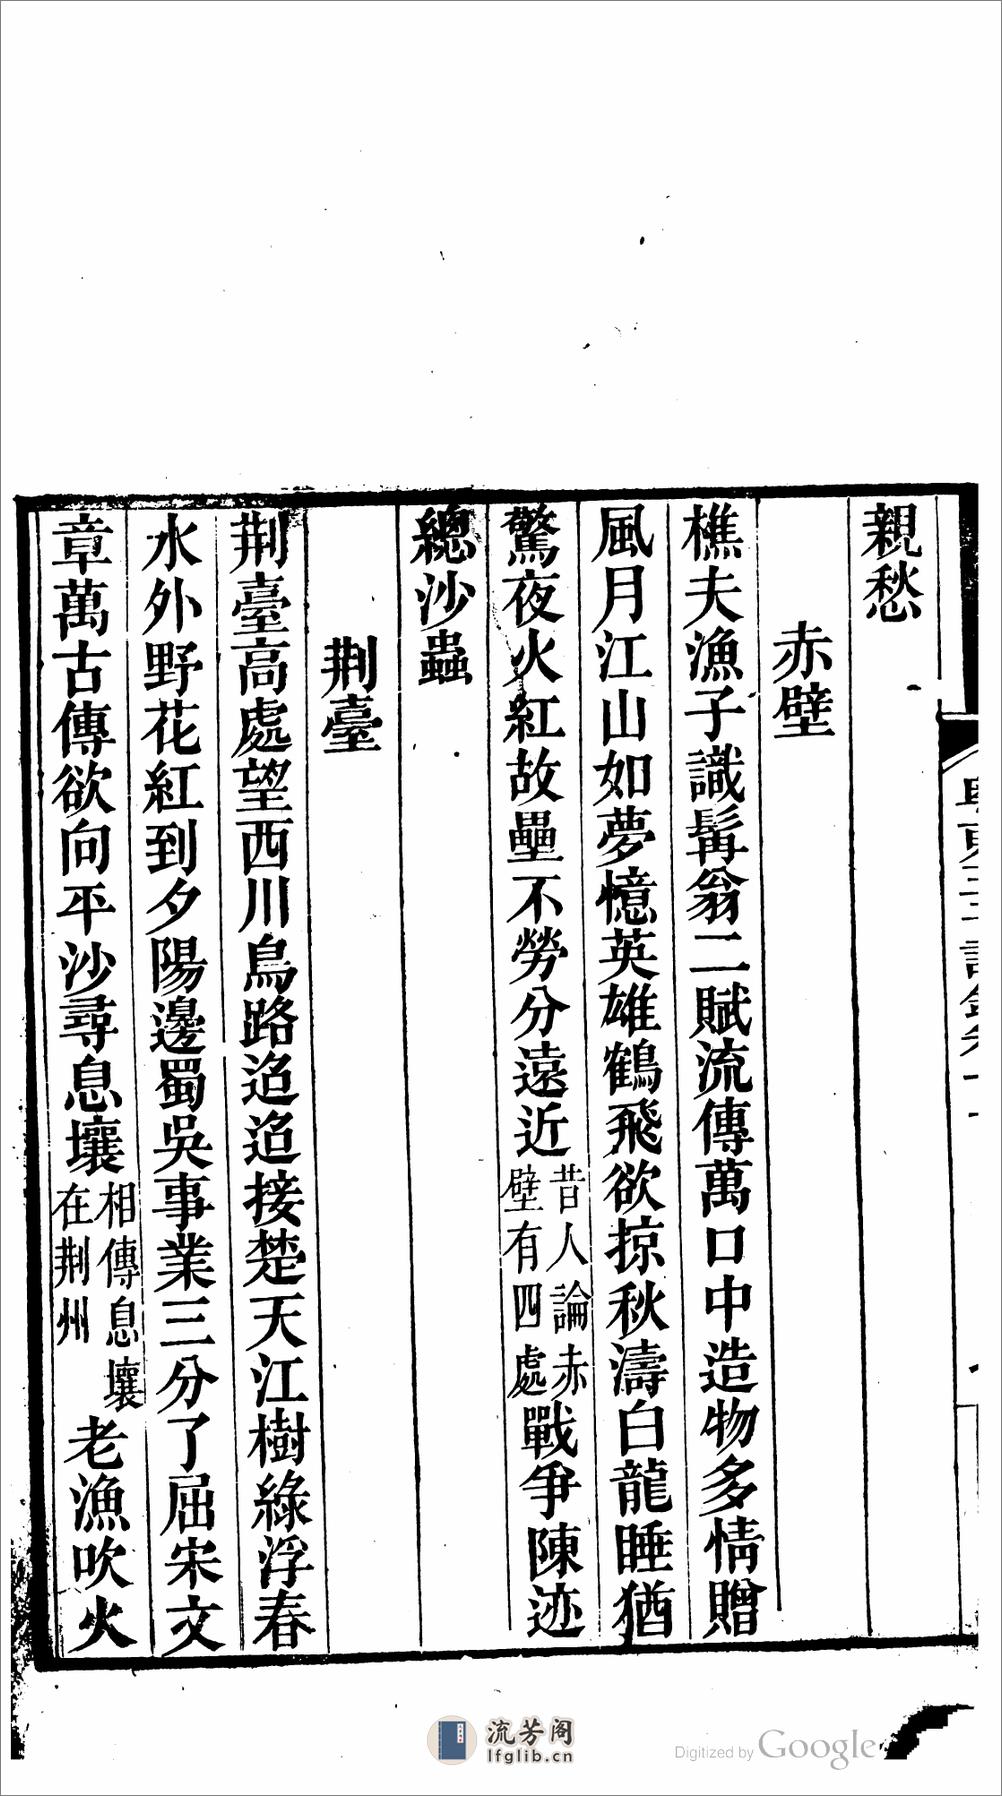 親愁
赤壁
樵夫漁子識髯翁二賦流傳萬口中造物多情贈
風月江山如夢憶英雄鶴飛欲掠秋濤白龍睡猶
驚夜火紅故壘不勞分遠近昔人論赤壁有四處戰爭陳迹
總沙蟲
荆臺
荆臺高處望西川鳥路迢迢接楚天江樹綠浮春
水外野花紅到夕陽邊蜀吳事業三分了屈宋文
章萬古傳欲向平沙尋息壤相傳息壤在荆州老漁吹火
流芳阁
lfglib.cn
Digitized by Google